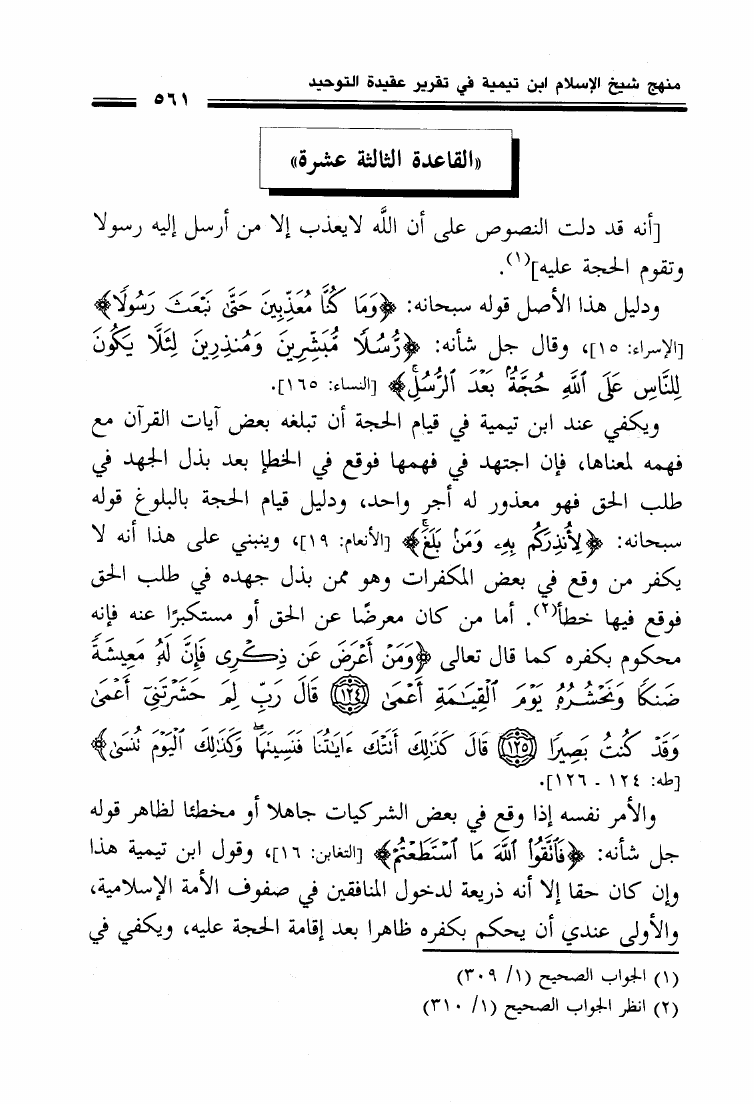 منهج شيخ الإسلام ابن تيمية في تقرير عقيدة التوحيد
٥٦١
«القاعدة الثالثة عشرة»
[أنه قد دلت النصوص على أن اللَّه لايعذب إلا من أرسل إليه رسولا
وتقوم الحجة عليه](١).
ودليل هذا الأصل قوله سبحانه: ﴿وَمَا كُنَّا مُعَذِّبِينَ حَتَّىٰ نَبْعَثَ رَسُولًا﴾
[الإسراء: ١٥]، وقال جل شأنه: ﴿رُّسُلًا مُّبَشِّرِينَ وَمُنذِرِينَ لِئَلَّا يَكُونَ
لِلنَّاسِ عَلَى ٱللَّهِ حُجَّةٌۢ بَعْدَ ٱلرُّسُلِۚ﴾ [النساء: ١٦٥].
ويكفي عند ابن تيمية في قيام الحجة أن تبلغه بعض آيات القرآن مع
فهمه لمعناها، فإن اجتهد في فهمها فوقع في الخطإ بعد بذل الجهد في
طلب الحق فهو معذور له أجر واحد، ودليل قيام الحجة بالبلوغ قوله
سبحانه: ﴿لِأُنذِرَكُم بِهِۦ وَمَنۢ بَلَغَۚ﴾ [الأنعام: ١٩]، وينبني على هذا أنه لا
يكفر من وقع في بعض المكفرات وهو ممن بذل جهده في طلب الحق
فوقع فيها خطأ(٢). أما من كان معرضًا عن الحق أو مستكبرًا عنه فإنه
محكوم بكفره كما قال تعالى ﴿وَمَنْ أَعْرَضَ عَن ذِكْرِى فَإِنَّ لَهُۥ مَعِيشَةً
ضَنكًا وَنَحْشُرُهُۥ يَوْمَ ٱلْقِيَـٰمَةِ أَعْمَىٰ ١٢٤ قَالَ رَبِّ لِمَ حَشَرْتَنِىٓ أَعْمَىٰ
وَقَدْ كُنتُ بَصِيرًا ١٢٥ قَالَ كَذَٰلِكَ أَتَتْكَ ءَايَـٰتُنَا فَنَسِيتَهَاۖ وَكَذَٰلِكَ ٱلْيَوْمَ تُنسَىٰ﴾
[طه: ١٢٤ - ١٢٦].
والأمر نفسه إذا وقع في بعض الشركيات جاهلا أو مخطئا لظاهر قوله
جل شأنه: ﴿فَٱتَّقُوا۟ ٱللَّهَ مَا ٱسْتَطَعْتُمْ﴾ [التغابن: ١٦]، وقول ابن تيمية هذا
وإن كان حقا إلا أنه ذريعة لدخول المنافقين في صفوف الأمة الإسلامية،
والأولى عندي أن يحكم بكفره ظاهرا بعد إقامة الحجة عليه، ويكفي في
(١) الجواب الصحيح (١/ ٣٠٩)
(٢) انظر الجواب الصحيح (١/ ٣١٠)